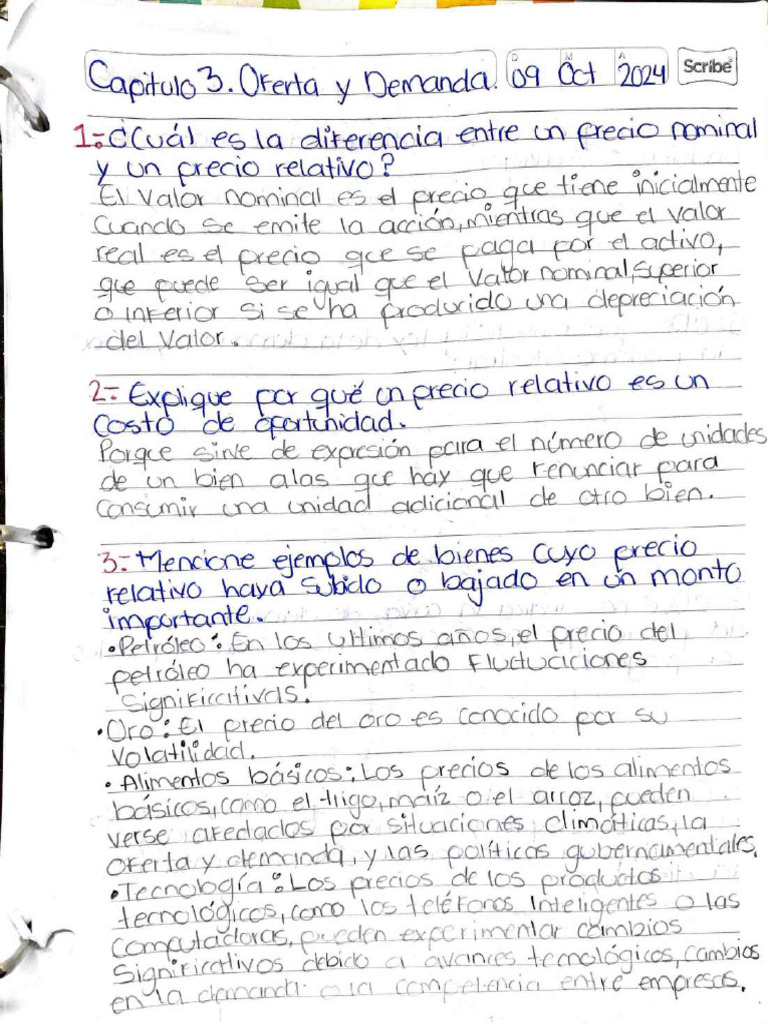 Capitulo 3. Oferta y Demanda.
D M A
09 Oct 2024
Scribe
1:- ¿Cuál es la diferencia entre un precio nominal
y un precio relativo?
El valor nominal es el precio que tiene inicialmente
Cuando se emite la acción, mientras que el valor
real es el precio que se paga por el activo,
que puede ser igual que el valor nominal, superior
o inferior si se ha producido una depreciación
del valor.
2:- Explique por qué un precio relativo es un
costo de oportunidad.
Porque sirve de expresión para el número de unidades
de un bien alas que hay que renunciar para
consumir una unidad adicional de otro bien.
3:- Mencione ejemplos de bienes cuyo precio
relativo haya subido o bajado en un monto
importante.
• Petróleo: En los ultimos años, el precio del
petróleo ha experimentado Fluctuaciones
Significativas.
• Oro: El precio del oro es conocido por su
Volatilidad.
• Alimentos básicos: Los precios de los alimentos
básicos, como el trigo, maíz o el arroz, pueden
verse afectados por situaciones climáticas, la
oferta y demanda, y las políticas gubernamentales.
• Tecnología: Los precios de los productos
tecnológicos, como los teléfonos Inteligentes o las
computadoras, pueden experimentar cambios
Significativos debido a avances tecnológicos, cambios
en la demanda o la competencia entre empresas.